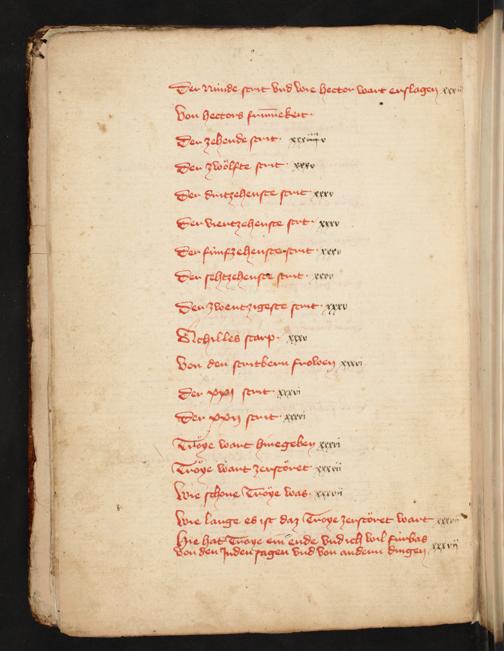 Der Nünde strit vnd wie hector wart erslagen
Von hectors frümekeit
Der zehende strit
Der zwölfte strit xxxv
Der dritzehenste strit xxxv
Der vierzehenste strit xxxv
Der fünfzehenste strit xxxv
Der sehtzehenste strit xxxv
Der zwentzigeste strit xxxv
Achilles starp xxxv
Von den stritbern frowen xxxvi
Der xxi strit xxxvi
Der xxii strit xxxvi
Troye wart hingegeben xxxvi
Troye wart zerstöret xxxvii
Wie schöne Troye was xxxvii
Wie lange es ist daz Troye zerstöret wart
Hie hat Troye ein ende vnd ich wil fürbas
von den Juden sagen vnd von andern dingen xxxvii